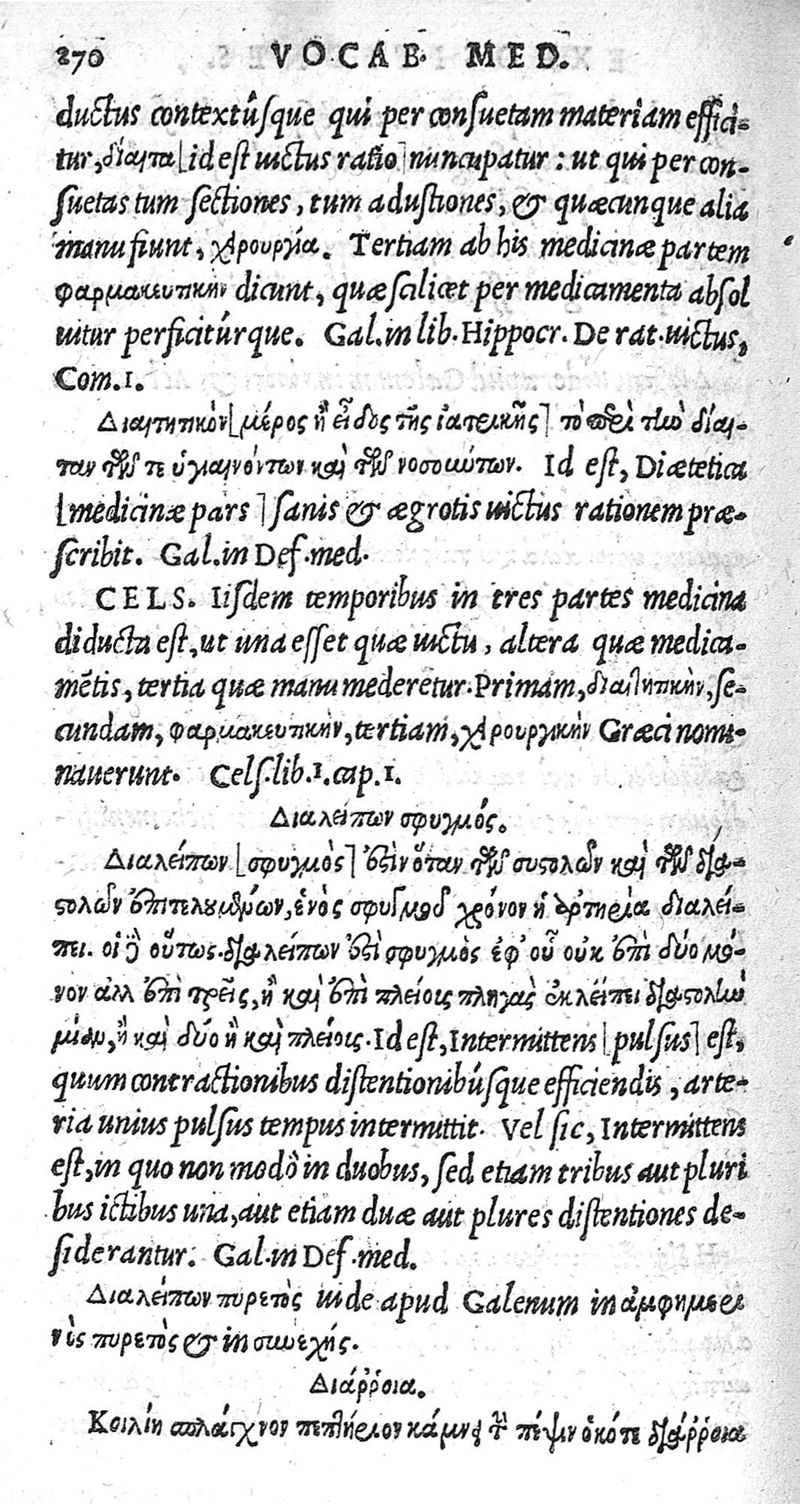 270 VOCAB. MED.
ductus contextûsque qui per consuetam materiam effici-
tur, δίαιτα [id est uictus ratio] nuncupatur: ut qui per con-
suetas tum sectiones, tum adustiones, & quæcunque alia
manu fiunt, χειρουργία. Tertiam ab his medicinæ partem
φαρμακευτικὴν dicunt, quæ scilicet per medicamenta absol
uitur perficitúrque. Gal. in lib. Hippocr. De rat. uictus,
Com. 1.
Διαιτητικὸν [μέρος ἢ εἶδος τῆς ἰατρικῆς] τὸ περὶ τὴν δίαι-
ταν τῶν τε ὑγιαινόντων καὶ τῶν νοσούντων. Id est, Diætetica
[medicinæ pars] sanis & ægrotis uictus rationem præ-
scribit. Gal. in Def. med.
CELS. Iisdem temporibus in tres partes medicina
diducta est, ut una esset quæ uictu, altera quæ medica-
mētis, tertia quæ manu mederetur. Primam, διαιτητικὴν, se-
cundam, φαρμακευτικὴν, tertiam, χειρουργικὴν Græci nomi-
nauerunt. Cels. lib. 1. cap. 1.
Διαλείπων σφυγμός.
Διαλείπων [σφυγμὸς] ἐστὶν ὅταν τῶν συστολῶν καὶ τῶν δια-
στολῶν ἐπιτελουμένων, ἑνὸς σφυγμοῦ χρόνον ἡ ἀρτηρία διαλεί-
πει. οἱ δὲ οὕτως. διαλείπων ἐστὶ σφυγμὸς ἐφ' οὗ οὐκ ἐπὶ δύο μό-
νον ἀλλ' ἐπὶ τρεῖς, ἢ καὶ ἐπὶ πλείοις πληγὰς ἐκλείπει διαστολὴν
μίαν, ἢ καὶ δύο ἢ καὶ πλείοις. Id est, Intermittens [pulsus] est,
quum contractionibus distentionibúsque efficiendis, arte-
ria unius pulsus tempus intermittit. Vel sic, Intermittens
est, in quo non modò in duobus, sed etiam tribus aut pluri
bus ictibus una, aut etiam duæ aut plures distentiones de-
siderantur. Gal. in Def. med.
Διαλείπων πυρετὸς uide apud Galenum in ἀμφημερι
νὸς πυρετὸς & in συνεχής.
Διάῤῥοια.
Κοιλίη σπλάγχνον πεπλήριον κάμνει τὴν πέψιν ὁκότε διάῤῥοια